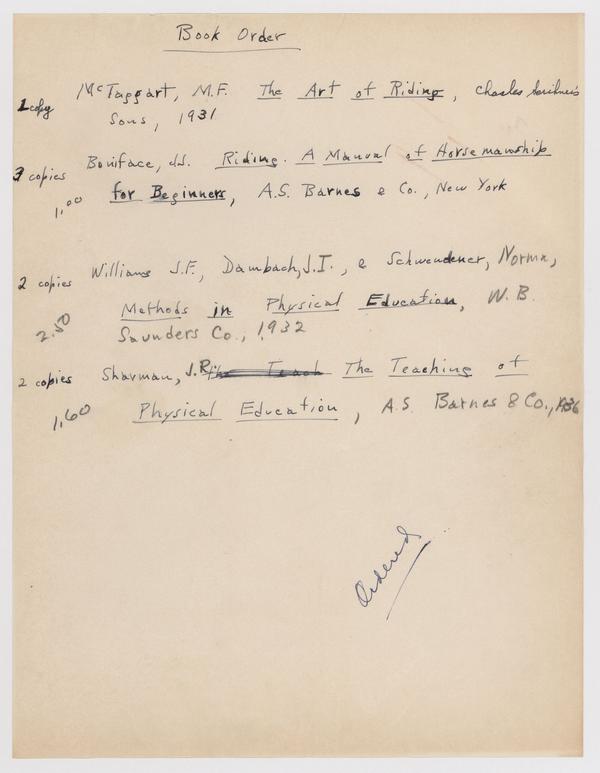 Book Order
1 copy McTaggart, M.F. The Art of Riding, Charles Scribner's
Sons, 1931
3 copies Boniface, J.J. Riding. A Manual of Horsemanship
1.00 for Beginners, A.S. Barnes & Co., New York
2 copies Williams J.F., Dambach, J.I., & Schwendener, Norma,
Methods in Physical Education, W.B.
2.50 Saunders Co., 1932
2 copies Sharman, J.R. the Teach The Teaching of
1.60 Physical Education, A.S. Barnes & Co., 1936
Ordered